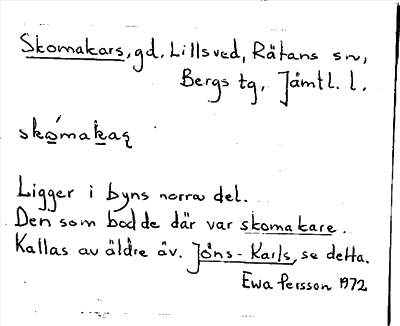 Skomakars, gd, Lillsved, Rätans sn,
Bergs tg, Jämtl. l.
skǫ́makaɋ
Ligger i byns norra del.
Den som bodde där var skomakare.
Kallas av äldre äv. Jöns-Karls, se detta.
Ewa Persson 1972